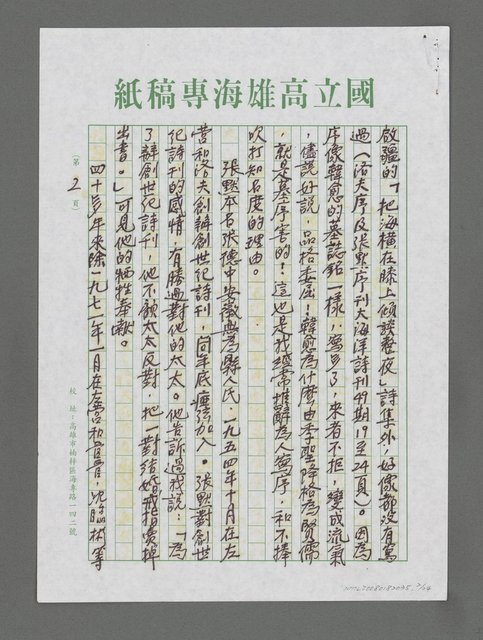 國立高雄海專稿紙
啟疆的「把海橫在膝上傾談整夜」詩集外，好像都沒有寫
過（洛夫序及張默序刊大海洋詩刊49期19至24頁）。因為
序像韓愈的墓誌銘一樣，寫多了，來者不拒，變成流氣
，儘說好說，品格委屈！韓愈為什麼由季聖降格為賢儒
，就是墓序害的！這也是我經常推辭為人寫序，和不捧
吹打知名度的理由。
張默本名張德中安徽無為縣人民，一九五四年十月在左
營和洛夫創辦創世紀詩刊，同年底瘂弦加入。張默對創世
紀詩刊的感情，有勝過對他的太太。他告訴過我說：「為
了辦創世紀詩刊，他不顧太太反對，把一對結婚戒指賣掉
出書。」可見他的犧牲奉獻。
四十多年來除一九七一年一月在左營和管管，沈臨彬等
（第 2 頁）
校址：高雄市楠梓區海專路一四二號
NMTL20080182035 2/24